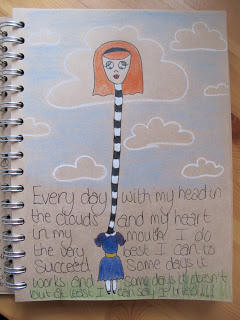 Every day with my head in
the clouds and my heart
in my mouth I do
the very best I can to
succeed. Some days it
works and some days it doesn't
but at least I can say I tried!!!!